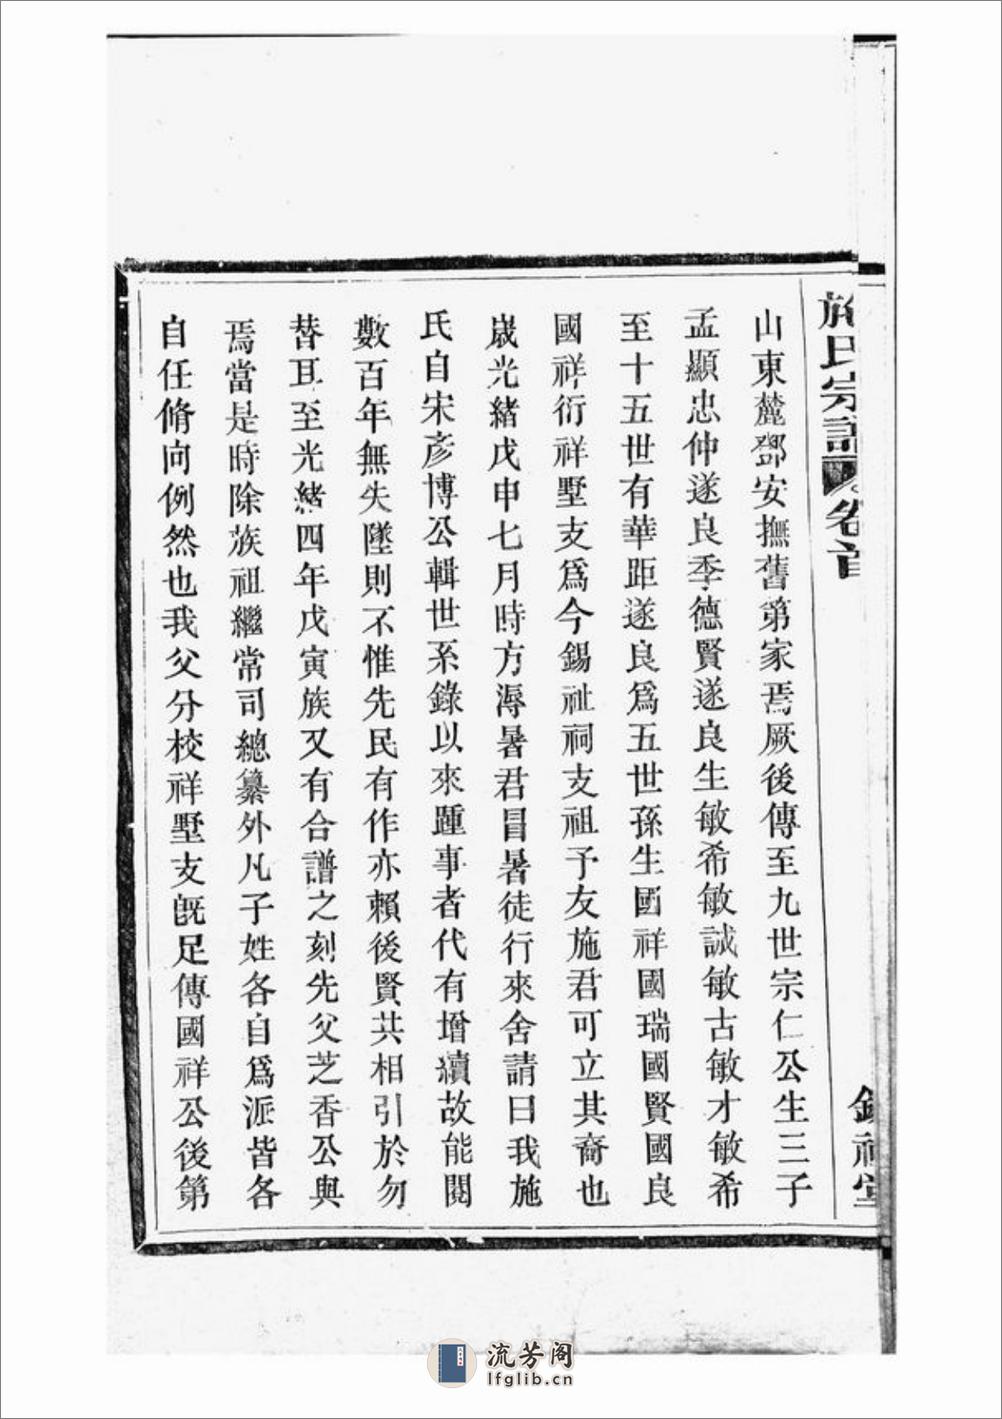 施氏宗譜 卷首 錫祉堂
山東麓鄧安撫舊第家焉厥後傳至九世宗仁公生三子
孟顯忠仲遂良季德賢遂良生敏希敏誠敏古敏才敏希
至十五世有華距遂良爲五世孫生國祥國瑞國賢國良
國祥衍祥墅支爲今錫祉祠支祖予友施君可立其裔也
歲光緒戊申七月時方溽暑君冒暑徒行來舍請曰我施
氏自宋彥博公輯世系錄以來踵事者代有增續故能閱
數百年無失墜則不惟先民有作亦賴後賢共相引於勿
替耳至光緒四年戊寅族又有合譜之刻先父芝香公與
焉當是時除族祖繼常司總纂外凡子姓各自爲派皆各
自任脩向例然也我父分校祥墅支旣足傳國祥公後第
流芳阁
lfglib.cn